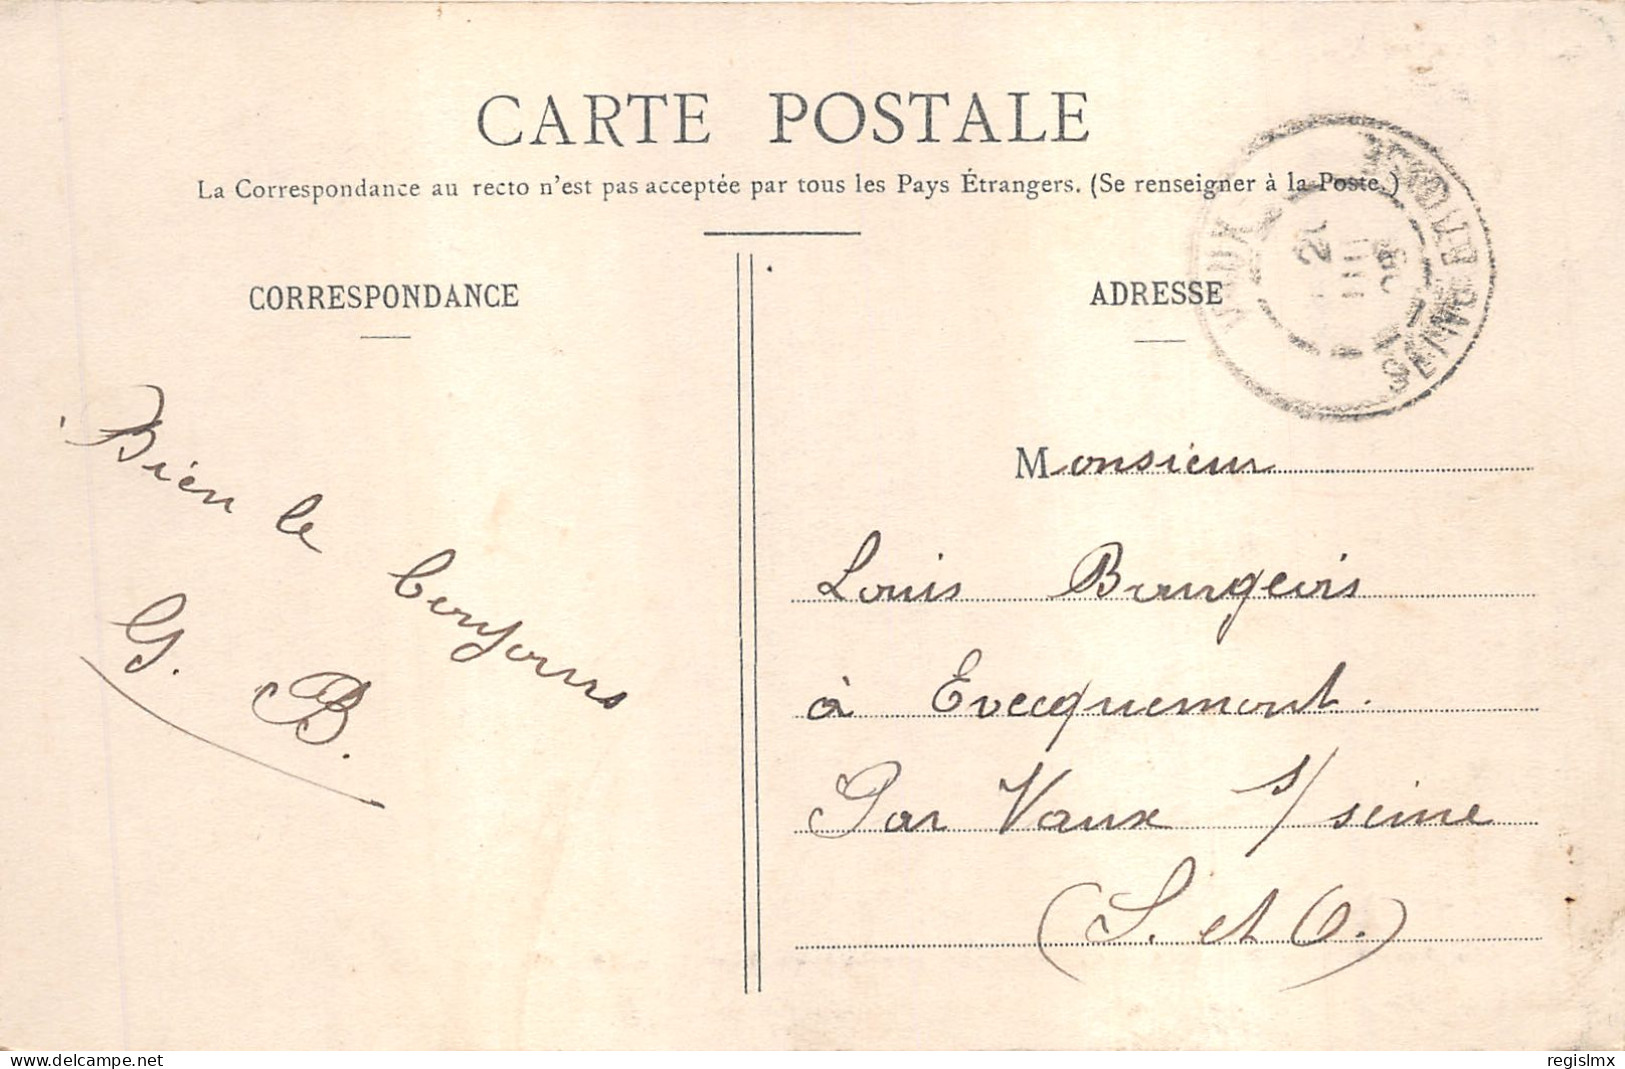 CARTE POSTALE
La Correspondance au recto n'est pas acceptée par tous les Pays Étrangers. (Se renseigner à la Poste.)
CORRESPONDANCE
ADRESSE
VAUX
SEINE
Bien le bonjours
G. B.
Monsieur
Louis Bourgeois
à Evecquemont.
Par Vaux s/ seine
(S. et O.)
www.delcampe.net
regislmx